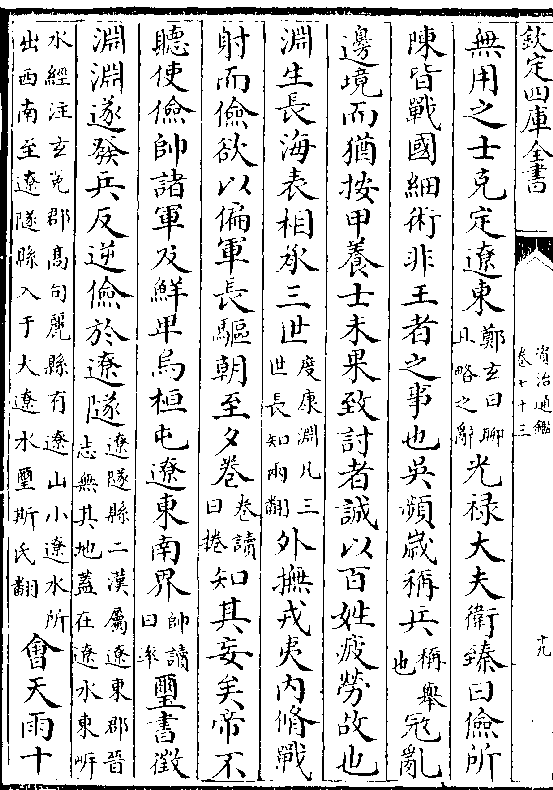 欽定四庫全書
資治通鑑
卷七十三
十九
無用之士克定遼東鄭玄曰聊且略之辭光禄大夫衛臻曰儉所
陳皆戰國細術非王者之事也吳頻歲稱兵稱舉也冦亂
邊境而猶按甲養士未果致討者誠以百姓疲勞故也
淵生長海表相承三世度康淵凡三世長知兩翻外撫戎夷内脩戰
射而儉欲以偏軍長驅朝至夕卷卷讀曰捲知其妄矣帝不
聽使儉帥諸軍及鮮卑烏桓屯遼東南界帥讀曰率璽書徵
淵淵遂發兵反逆儉於遼隧遼隧縣二漢屬遼東郡晉志無其地蓋在遼水東㟁
水經注玄菟郡髙句麗縣有遼山小遼水所出西南至遼隧縣入于大遼水璽斯氏翻會天雨十